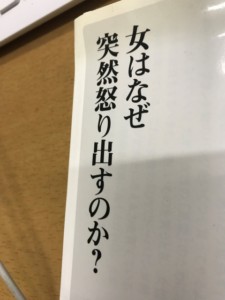 女はなぜ
突然怒り出すのか？